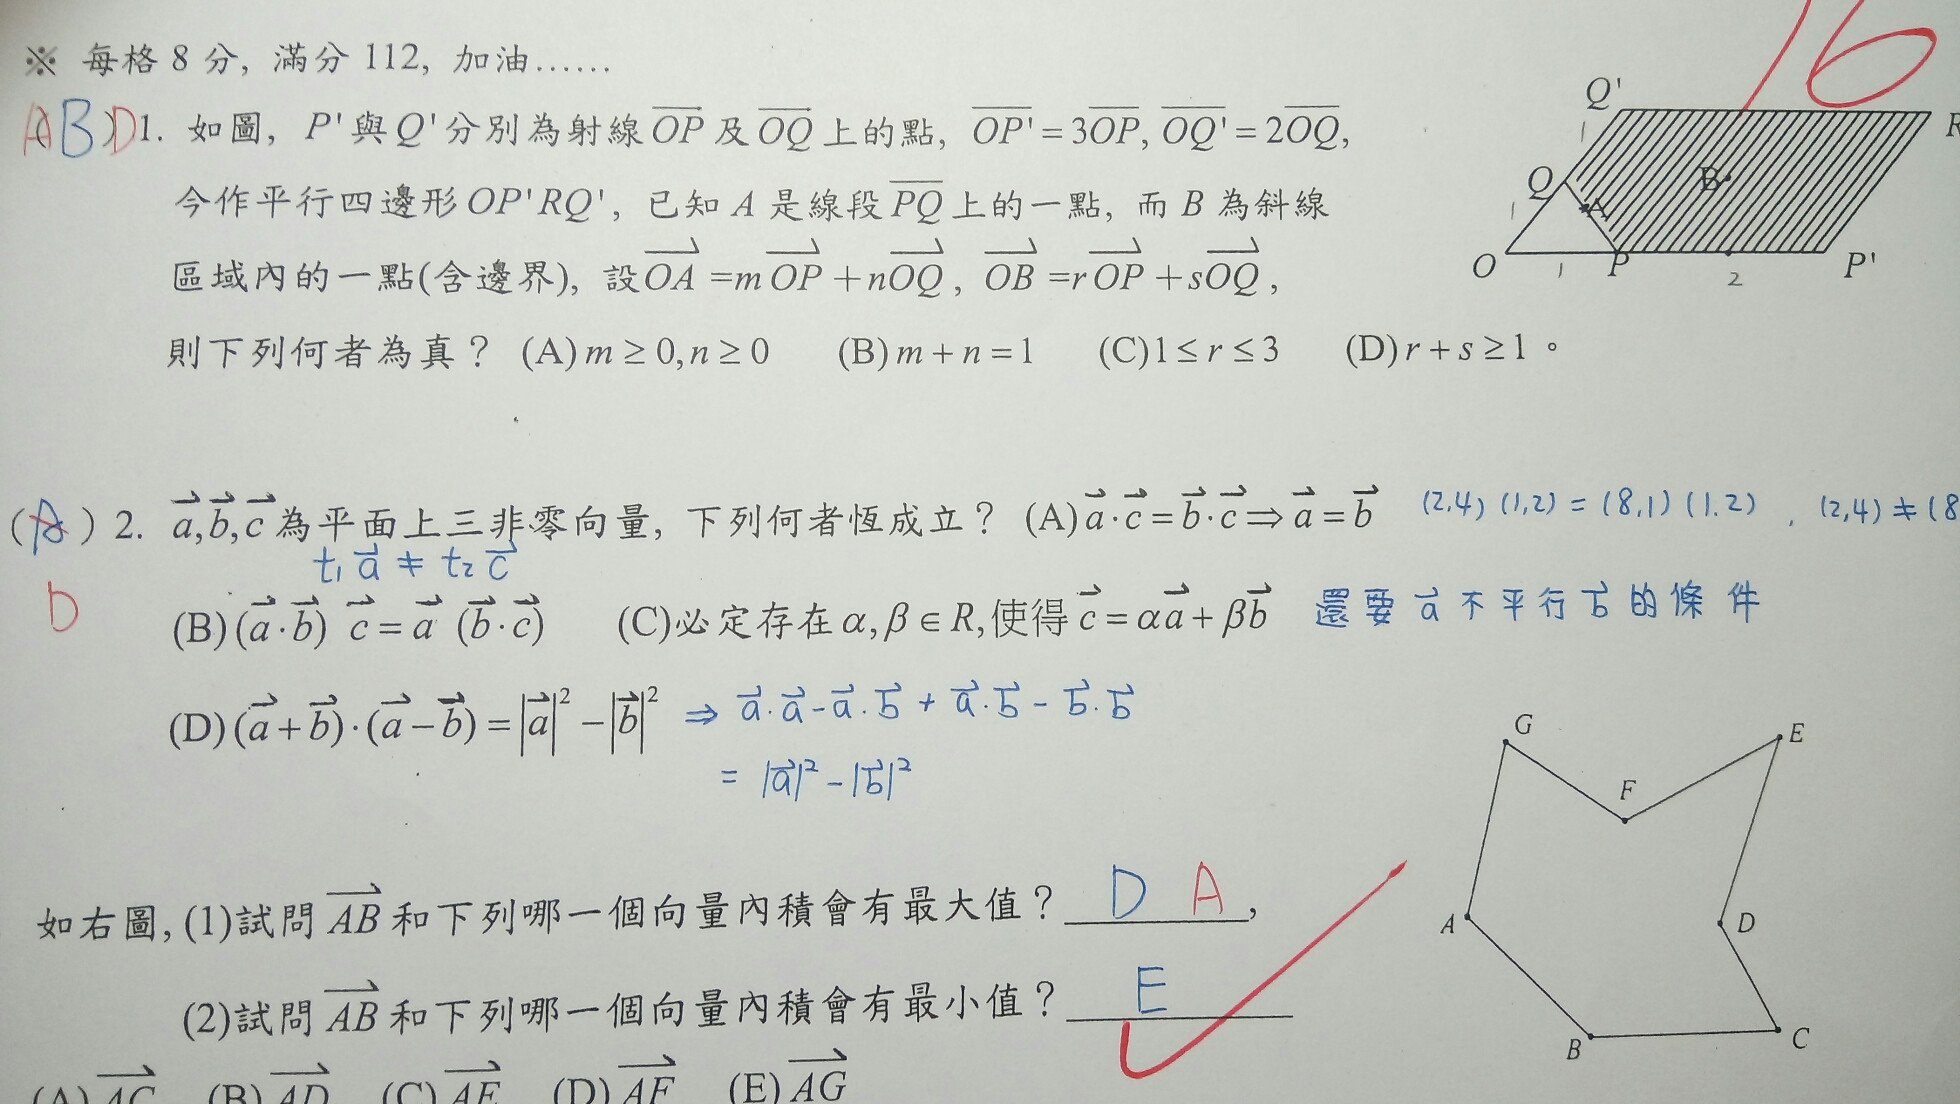 ※ 每格 8 分, 滿分 112, 加油……
16
(ABD) 1. 如圖, P'與Q'分別為射線 OP 及 OQ 上的點, OP' = 3OP, OQ' = 2OQ,
今作平行四邊形 OP'RQ', 已知 A 是線段 PQ 上的一點, 而 B 為斜線
區域內的一點(含邊界), 設 OA = m OP + n OQ, OB = r OP + s OQ,
則下列何者為真? (A) m ≥ 0, n ≥ 0 (B) m + n = 1 (C) 1 ≤ r ≤ 3 (D) r + s ≥ 1。
Q' R
1
Q B A
1
O 1 P 2 P'
(A) 2. a, b, c 為平面上三非零向量, 下列何者恆成立? (A) a·c = b·c ⇒ a = b (2,4) (1,2) = (8,1) (1.2) , (2,4) ≠ (8
t₁ a ≠ t₂ c
D
(B) (a·b) c = a (b·c) (C)必定存在 α, β ∈ R, 使得 c = αa + βb 還要 a 不平行 b 的條件
(D) (a + b)·(a − b) = |a|² − |b|² ⇒ a·a - a·b + a·b - b·b
= |a|² - |b|²
G E
F
A D
B C
如右圖, (1)試問 AB 和下列哪一個向量內積會有最大值? D A ,
(2)試問 AB 和下列哪一個向量內積會有最小值? E
(A) AC (B) AD (C) AE (D) AF (E) AG